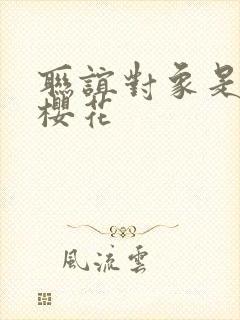 聯誼對象是
櫻花
風流雲